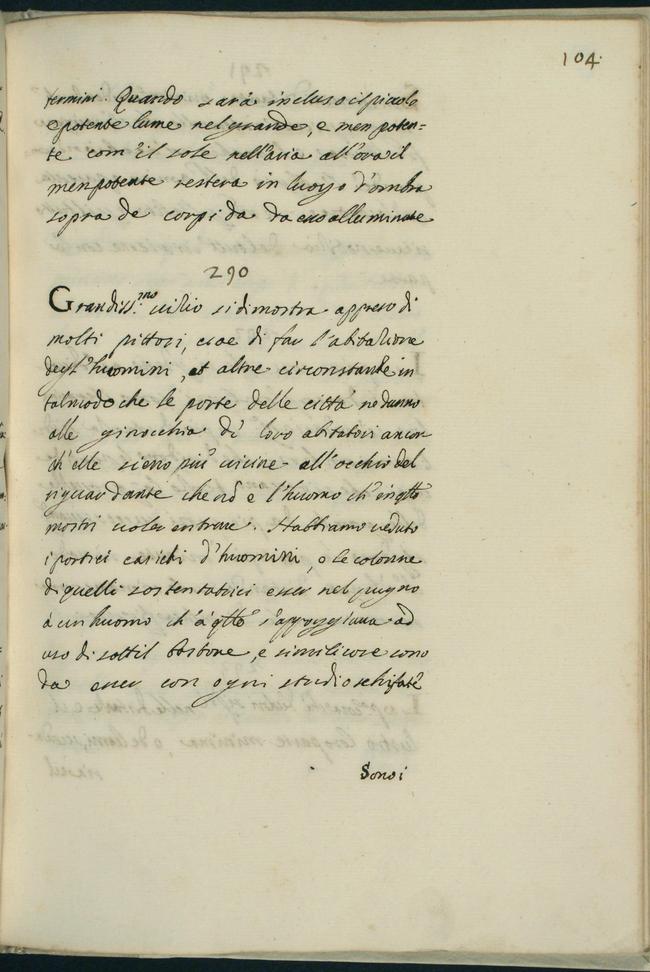 104.
termini. Quando sarà incluso il picciolo
e potente lume nel grande, e men poten=
te com'il sole nell'aria all'ora il
men potente restera in luogo d'ombra
sopra de corpi da da esso alluminate
290
Grandiss.mo uitio si dimostra appreso di
molti pittori, cioe di far l'abitatione
degl'huomini, et altre circonstante in
tal modo che le porte delle città nõ danno
alle ginocchia di loro abitatori ancor
ch'elle sieno più uicine all'occhio del
riguardante che nõ è l'huomo ch'in qsto
mostri uoler entrare. Habbiamo ueduto
i portici carichi d'huomini, e le colonne
di quelli sostentatrici esser nel pugno
à un huomo ch'à qsto s'appoggiaua ad
uso di sottil bastone, e simili cose sono
da esser con ogni studio schifate
Sono i